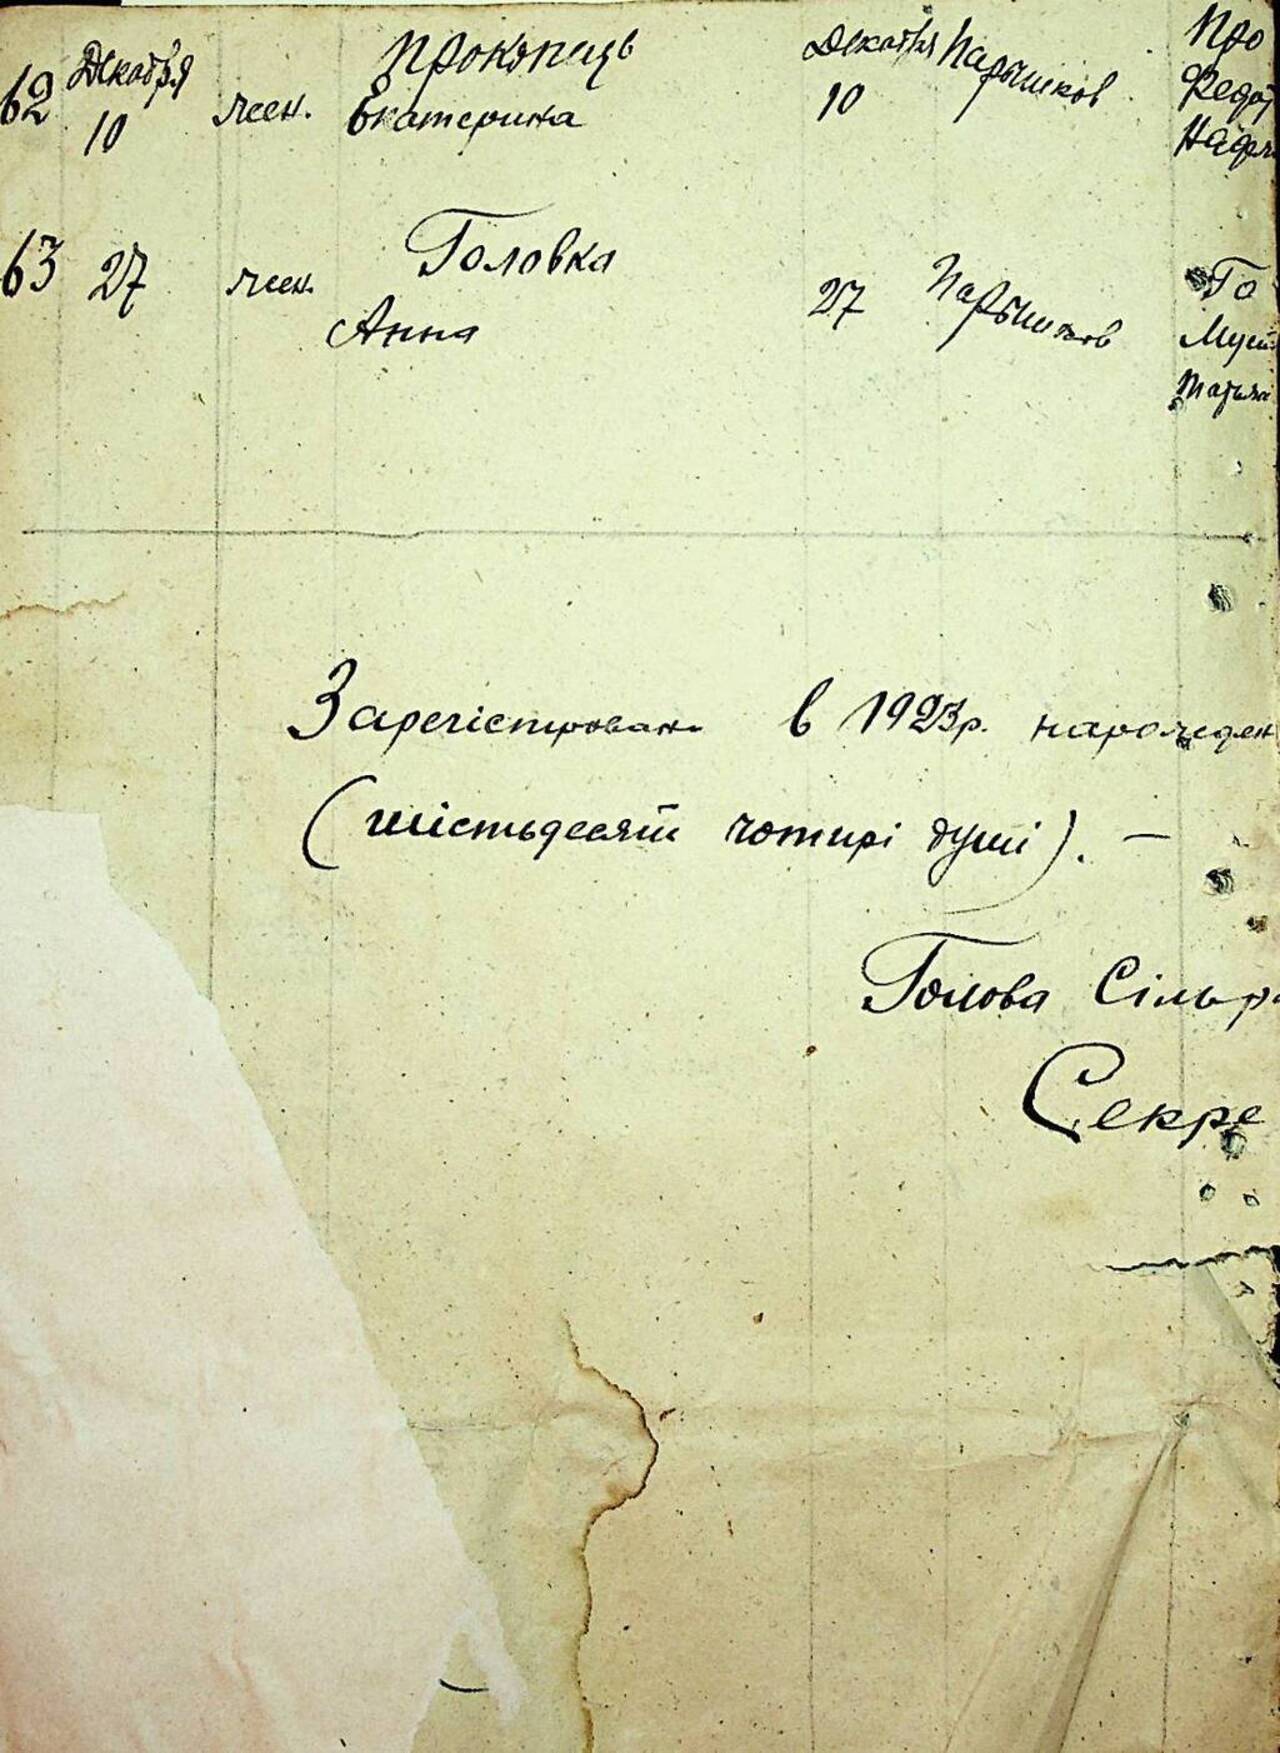 62 Декабря 10 жен. Прокопець Екатерина Декабря 10 Парышков Про
Федо
63 27 жен. Головка Анна 27 Парышков Го
Муси
Татья
Зарегістровано в 1923р. нарожден
(шістьдесят чотирі душі). —
Голова Сільр
Секре